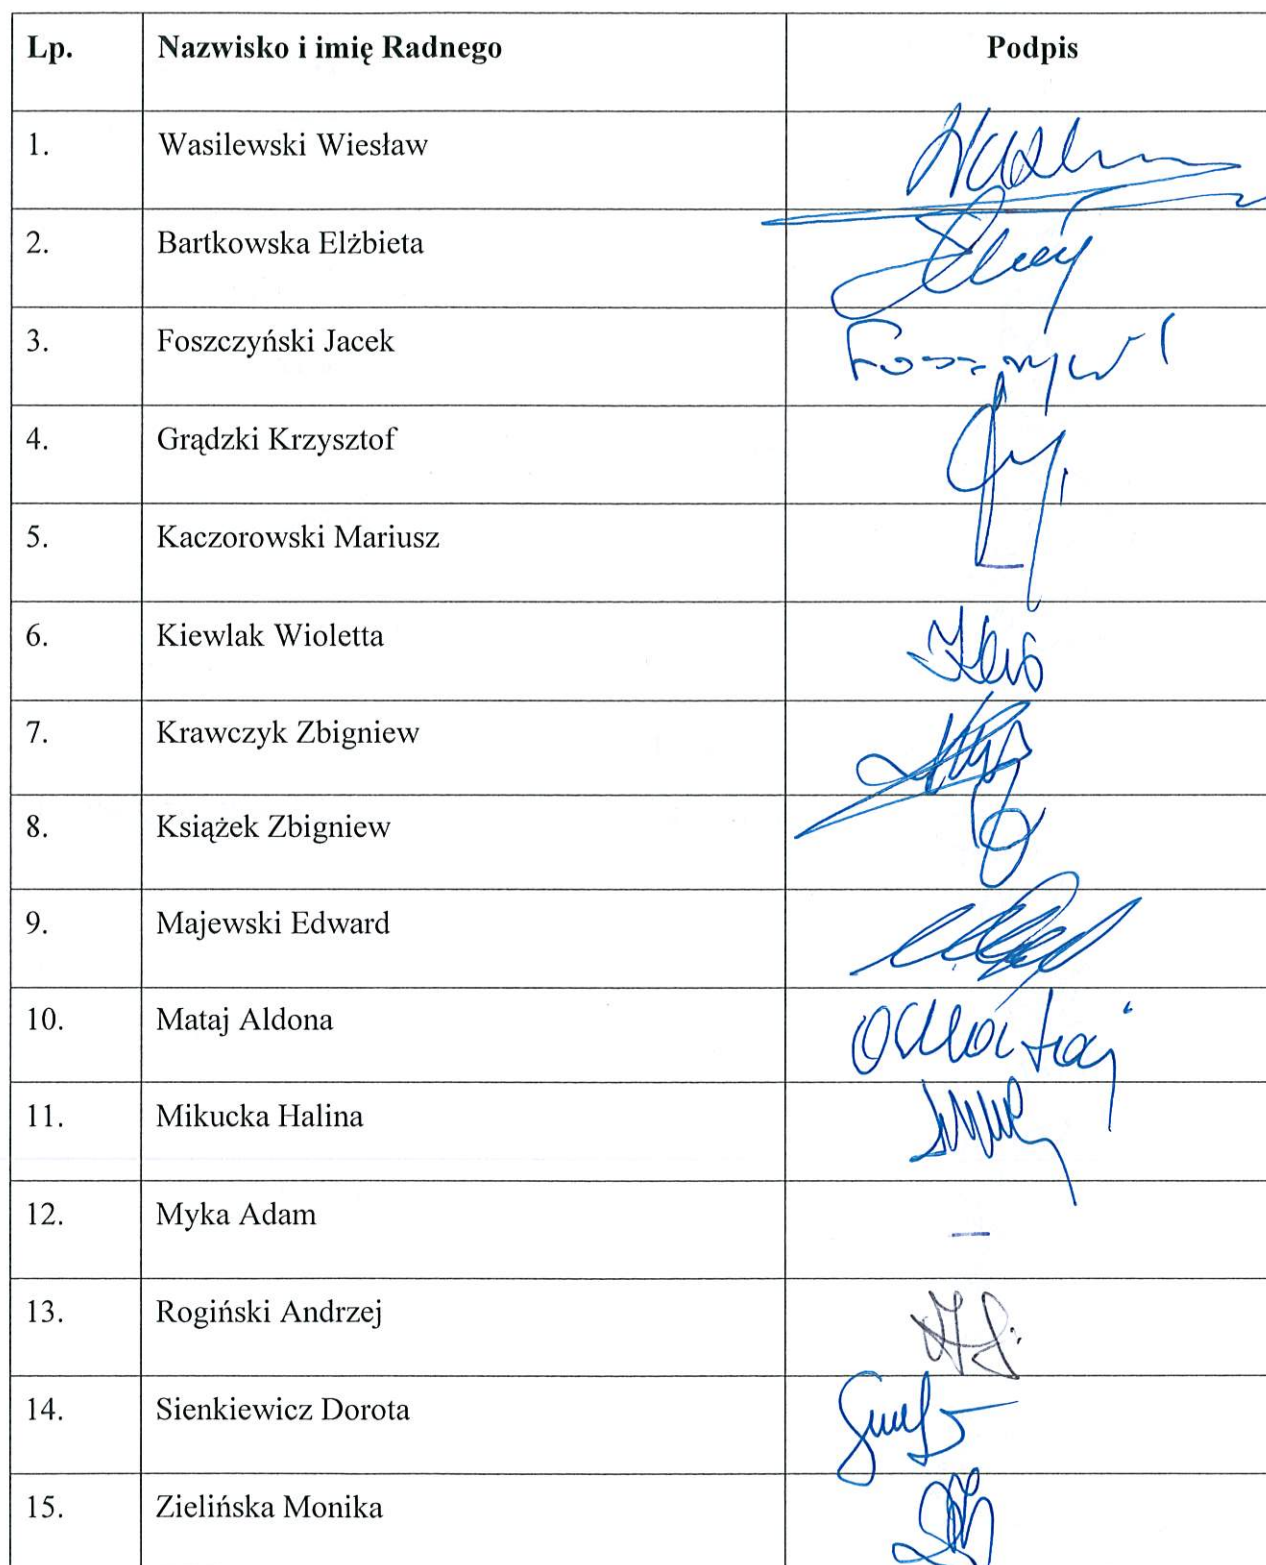 Lp. Nazwisko i imię Radnego Podpis
1. Wasilewski Wiesław
2. Bartkowska Elżbieta
3. Foszczyński Jacek
4. Grądzki Krzysztof
5. Kaczorowski Mariusz —
6. Kiewlak Wioletta
7. Krawczyk Zbigniew
8. Książek Zbigniew
9. Majewski Edward
10. Mataj Aldona
11. Mikucka Halina
12. Myka Adam —
13. Rogiński Andrzej
14. Sienkiewicz Dorota
15. Zielińska Monika